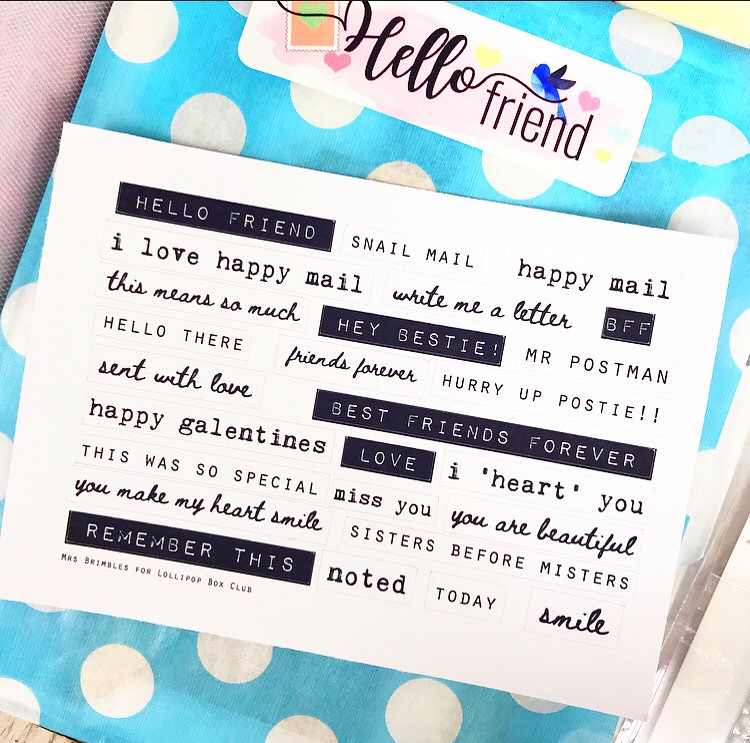 Hello
friend
HELLO FRIEND
SNAIL MAIL
happy mail
i love happy mail
this means so much
write me a letter
BFF
HELLO THERE
HEY BESTIE!
MR POSTMAN
friends forever
sent with love
HURRY UP POSTIE!!
BEST FRIENDS FOREVER
happy galentines
LOVE
i 'heart' you
THIS WAS SO SPECIAL
miss you
you are beautiful
you make my heart smile
SISTERS BEFORE MISTERS
REMEMBER THIS
noted
TODAY
smile
MRS BRIMBLES FOR LOLLIPOP BOX CLUB